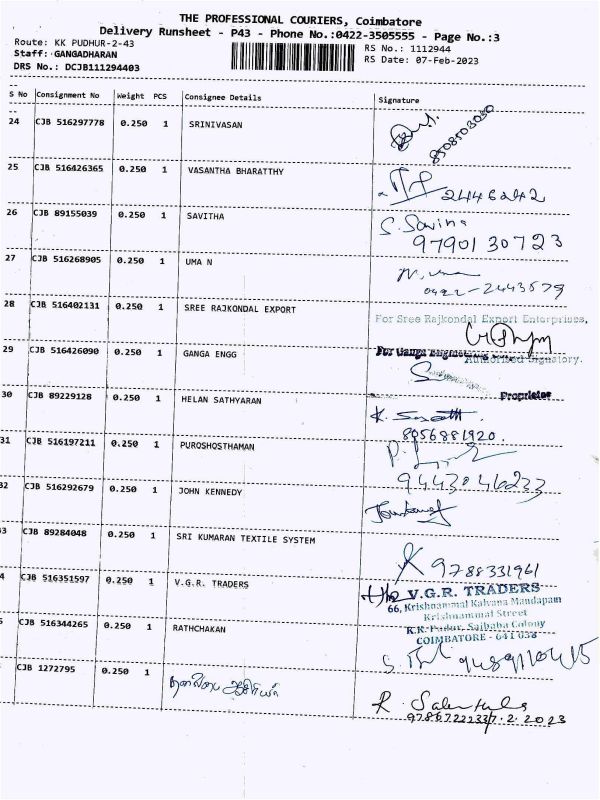 THE PROFESSIONAL COURIERS, Coimbatore
Delivery Runsheet - P43 - Phone No.:0422-3505555 - Page No.:3
Route: KK PUDHUR-2-43 RS No.: 1112944
Staff: GANGADHARAN RS Date: 07-Feb-2023
DRS No.: DCJB111294403
S No Consignment No Weight PCS Consignee Details Signature
24 CJB 516297778 0.250 1 SRINIVASAN
8508503030
25 CJB 516426365 0.250 1 VASANTHA BHARATTHY
2446242
26 CJB 89155039 0.250 1 SAVITHA S. Savitha
9790130723
27 CJB 516268905 0.250 1 UMA N N. Uma
0422-2443679
28 CJB 516402131 0.250 1 SREE RAJKONDAL EXPORT For Sree Rajkondal Export Enterprises,
Authorised Signatory.
29 CJB 516426090 0.250 1 GANGA ENGG For Ganga Engineering
Proprietor
30 CJB 89229128 0.250 1 HELAN SATHYARAN K.
8056881920.
31 CJB 516197211 0.250 1 PUROSHOSTHAMAN
9443046233
32 CJB 516292679 0.250 1 JOHN KENNEDY
3 CJB 89284048 0.250 1 SRI KUMARAN TEXTILE SYSTEM
9788331961
4 CJB 516351597 0.250 1 V.G.R. TRADERS V.G.R. TRADERS
66, Krishnammal Kalyana Mandapam
Krishnammal Street
K.K. Pudur, Saibaba Colony
COIMBATORE - 641 038
5 CJB 516344265 0.250 1 RATHCHAKAN
CJB 1272795 0.250 1
R.
7.2.2023